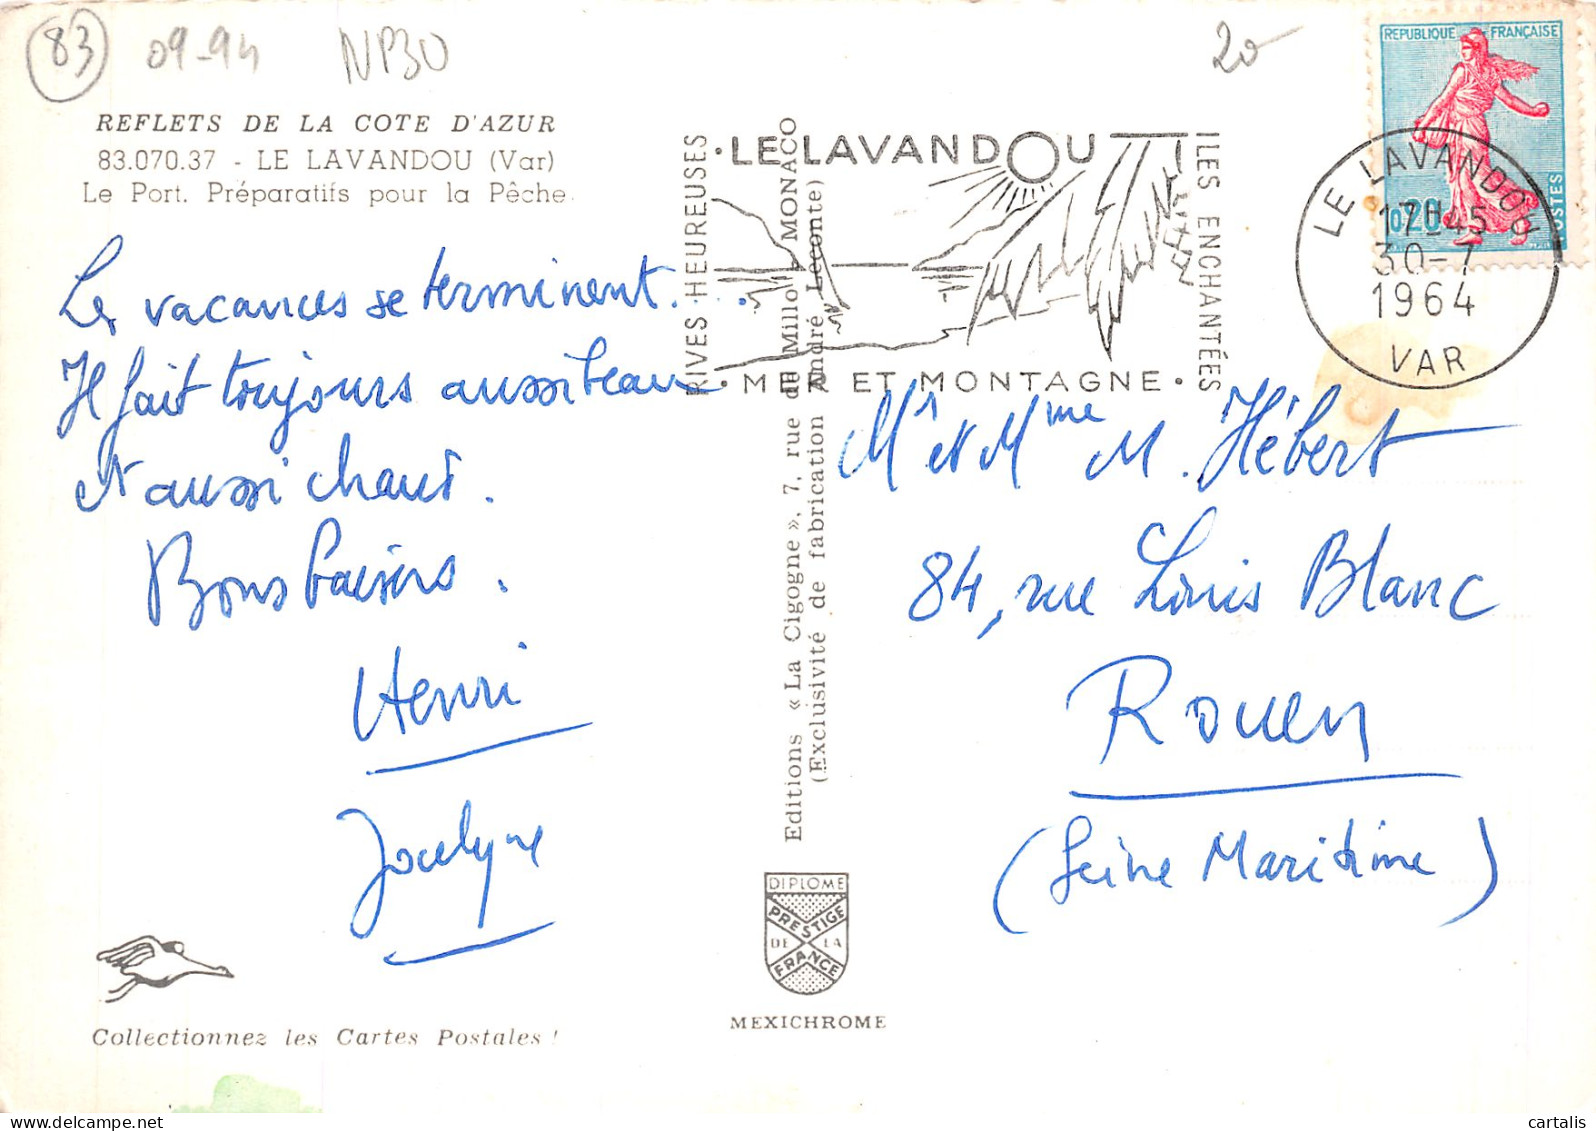 83
09-94
NP30
20
REFLETS DE LA COTE D'AZUR
83.070.37 - LE LAVANDOU (Var)
Le Port. Préparatifs pour la Pêche.
Les vacances se terminent....
Il fait toujours aussi beau
et aussi chaud.
Bons baisers.
Henri
Jocelyne
Collectionnez les Cartes Postales !
RIVES HEUREUSES
• LE LAVANDOU
• MER ET MONTAGNE •
ILES ENCHANTÉES
Editions « La Cigogne », 7, rue du Millo - MONACO
(Exclusivité de fabrication André Leconte)
DIPLOME
PRESTIGE
DE LA
FRANCE
MEXICHROME
REPUBLIQUE FRANÇAISE
0,20
POSTES
LE LAVANDOU
17H45
30-7
1964
VAR
Mr et Mme M. Hébert
84, rue Louis Blanc
Rouen
(Seine Maritime)
cartalis
delcampe.net